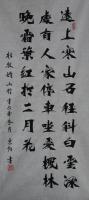 遠上寒山石径斜白雲深
處有人家停車坐愛楓林
晚霜葉紅於二月花
杜牧詩山行